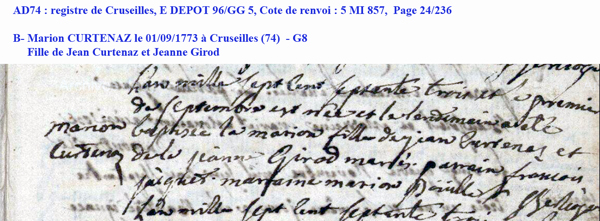 AD74 : registre de Cruseilles, E DEPOT 96/GG 5, Cote de renvoi : 5 MI 857, Page 24/236
B- Marion CURTENAZ le 01/09/1773 à Cruseilles (74) - G8
Fille de Jean Curtenaz et Jeanne Girod
L'an mille sept cent septante trois et le premier
de septembre est née et le lendemain a eté
marion baptisée la marion fille de jean Curtenaz et
Curtenaz de la jeanne Girod martin parrain françois
jacques marraine marion
L'an mille sept cent septante